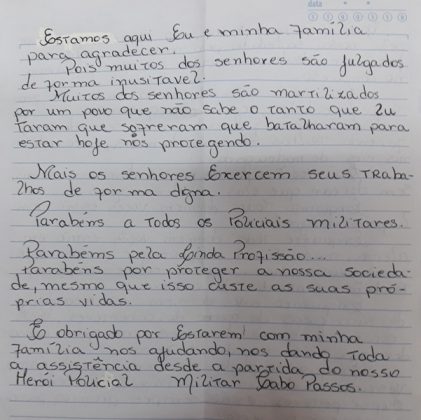 data
Estamos aqui Eu e minha família
para agradecer.
Pois muitos dos senhores são julgados
de forma inusitavel.
Muitos dos senhores são martilizados
por um povo que não sabe o tanto que lu
taram que sofreram que batalharam para
estar hoje nos protegendo.
Mais os senhores Exercem seus Traba-
lhos de forma dgna.
Parabéns a todos os Policiais militares.
Parabéms pela Linda Profissão...
Parabéns por proteger a nossa socieda-
de, mesmo que isso custe as suas pró-
prias vidas.
E obrigado por Estarem com minha
família nos ajudando, nos dando toda
a assistência desde a partida do nosso
Herói Policial Militar Cabo Passos.